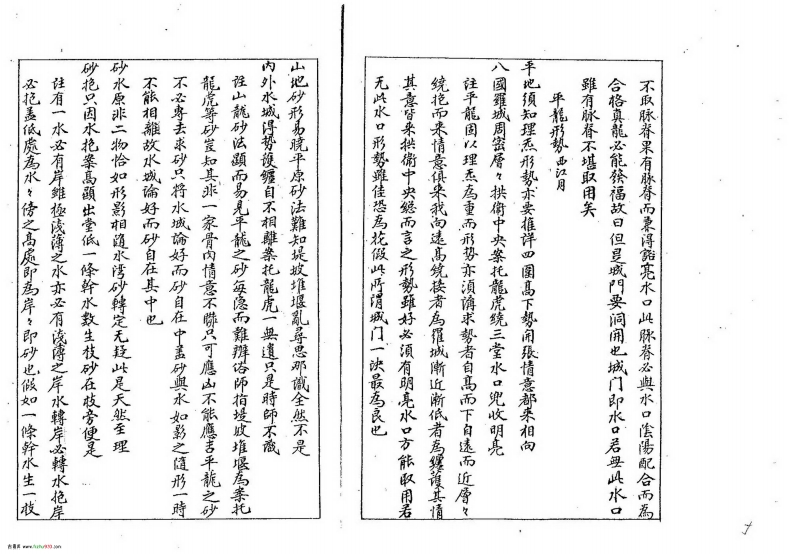 不取脉脊果有脉脊而兼得豁亮水口此脉脊必與水口陰陽配合而為
合格真龍必能發福故曰但是城門要洞開也城门即水口若無此水口
雖有脉脊不堪取用矣
平龍形勢西江月
平地須知理炁形勢亦要推详四圍高下勢開張情意都來相向
八國羅城周密層々拱衛中央案托龍虎繞三堂水口兜收明亮
註平龍固以理炁為重而形勢亦須講求勢者自高而下自遠而近層々
繞抱而來情意俱來我向遠高繞接者為羅城漸近漸低者為纏護其情
其意皆來拱衛中央總而言之形勢雖好必須有明亮水口方能取用若
无此水口形勢雖佳恐為花假此所謂城门一訣最為良也
山地砂形易曉平原砂法難知堤坡堆堰亂尋思那識全然不是
内外水城得勢護纏自不相離案托龍虎一無遺只是時師不識
註山龍砂法顯而易見平龍之砂每隱而難辨俗師指堤坡堆堰為案托
龍虎等砂豈知其非一家骨肉情意不聯只可應凶不能應吉平龍之砂
不必專去求砂只將水城論好而砂自在中盖砂與水如影之隨形一時
不能相離故水城論好而砂自在其中也
砂水原非二物恰如形影相隨水灣砂轉定无疑此是天然至理
砂抱只因水抱案高顯出堂低一條幹水數生枝砂在枝旁便是
註有一水必有岸雖極淺薄之水亦必有淺薄之岸水轉岸必轉水抱岸
必抱盖低處為水々傍之高處即為岸々即砂也假如一條幹水生一枝